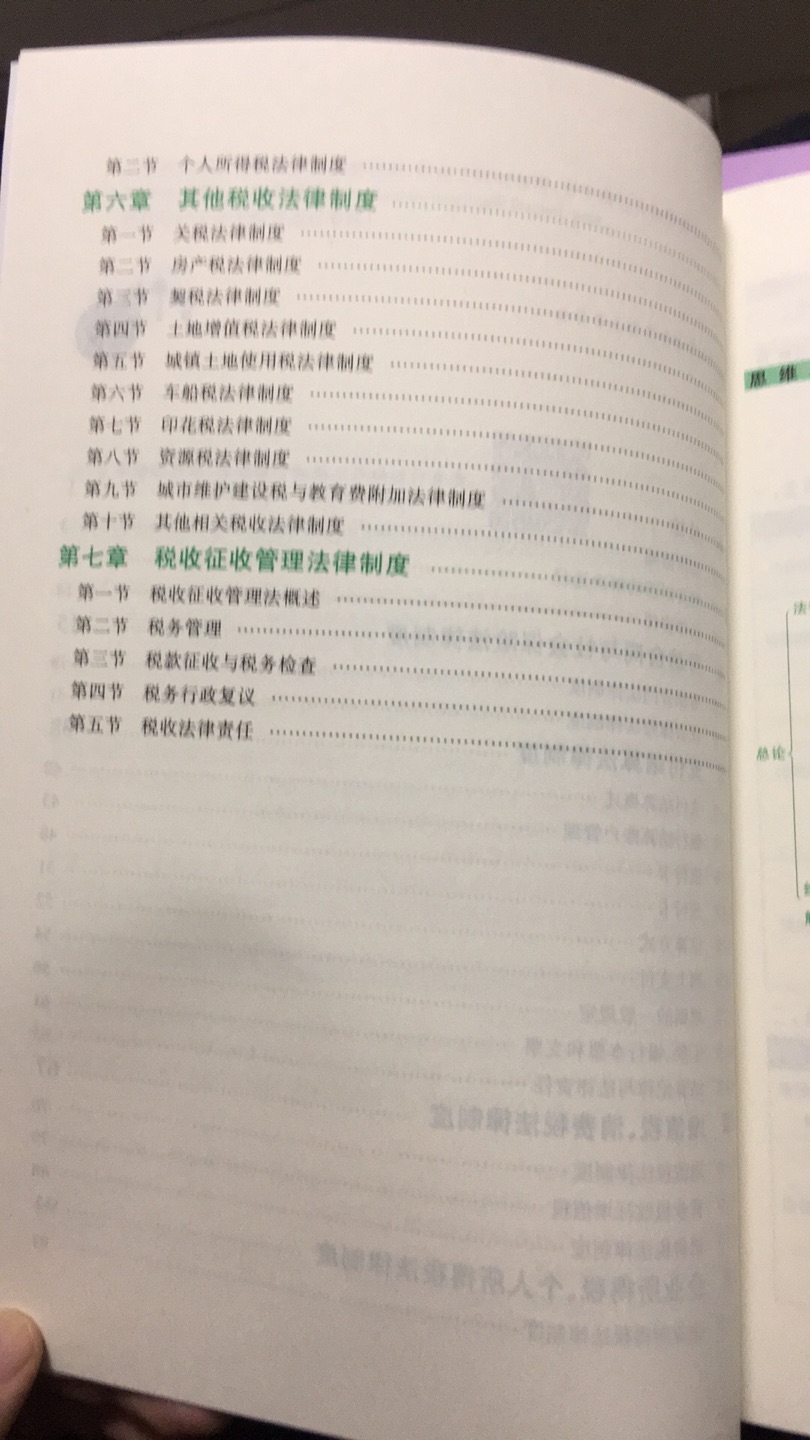 第二节 个人所得税法律制度
第六章 其他税收法律制度
第一节 关税法律制度
第二节 房产税法律制度
第三节 契税法律制度
第四节 土地增值税法律制度
第五节 城镇土地使用税法律制度
第六节 车船税法律制度
第七节 印花税法律制度
第八节 资源税法律制度
第九节 城市维护建设税与教育费附加法律制度
第十节 其他相关税收法律制度
第七章 税收征收管理法律制度
第一节 税收征收管理法概述
第二节 税务管理
第三节 税款征收与税务检查
第四节 税务行政复议
第五节 税收法律责任
思维
总论